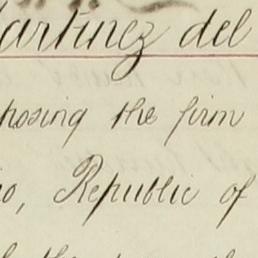 artinez del
hosing the firm
io, Republic of